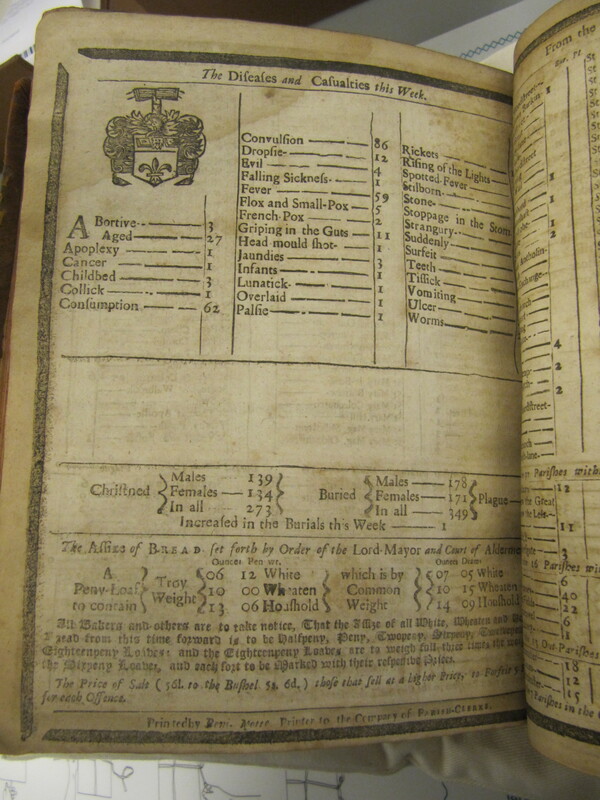 The Diseases and Casualties this Week.
ABortive 3
Aged 27
Apoplexy 1
Cancer 1
Childbed 3
Collick 1
Consumption 62
Convulsion 86
Dropsie 12
Evil 4
Falling Sickness 1
Fever 59
Flox and Small-Pox 5
French-Pox 2
Griping in the Guts 11
Head mould shot 1
Jaundies 3
Infants 1
Lunatick 1
Overlaid 1
Palsie 1
Rickets
Rising of the Lights
Spotted-Fever
Stilborn
Stone
Stoppage in the Stom
Strangury
Suddenly
Surfeit
Teeth
Tissick
Vomiting
Ulcer
Worms
Christned
Males 139
Females 134
In all 273
Buried
Males 178
Females 171
In all 349
Plague
Increased in the Burials this Week 1
The Assize of BREAD set forth by Order of the Lord-Mayor and Court of Alderm
Ounces Pen wt.
A Peny-Loaf to contain
Troy Weight
06 12 White
10 00 Wheaten
13 06 Houshold
which is by Common Weight
07 05 White
10 15 Wheaten
14 09 Houshold
All Bakers and others are to take notice, That the Assize of all White, Wheaten and
Bread from this time forward is to be Halfpeny, Peny, Twopeny, Sixpeny,
Eighteenpeny Loaves: and the Eighteenpeny Loaves are to weigh full three times the
the Sixpeny Loaves, and each sort to be Marked with their respective Prices.
The Price of Salt (56l. to the Bushel 5s. 6d.) those that sell at a higher Price, to Forfeit
for each Offence.
Printed by Printer to the Company of PARISH-CLERKS.
From the